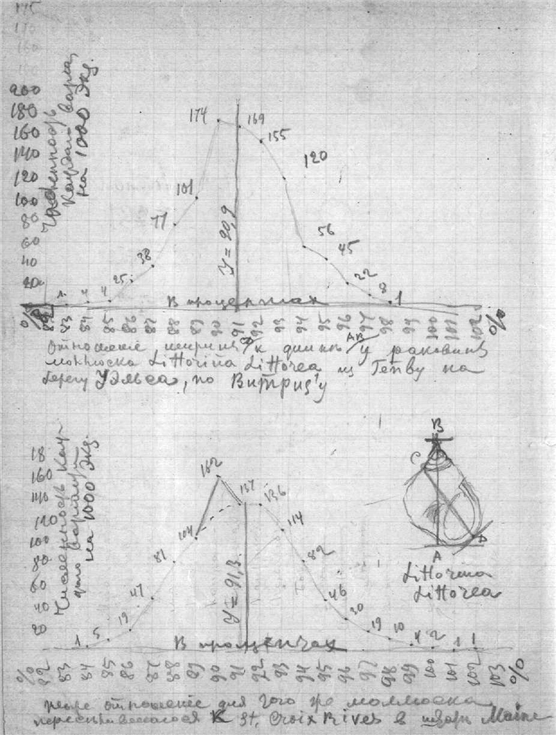 200
180
160
140
120
100
80
60
40
20
Численность
каждой варіац.
на 1000 экз.
174
169
155
120
101
77
56
45
38
25
22
8
4
4
1
1
У = 90,9
В процентах
% 82 83 84 85 86 87 88 89 90 91 92 93 94 95 96 97 98 99 100 101 102 %
Отношение ширины к длине у раковины
моллюска Littorina Littorea из Тенву на
берегу Уэльса, по Витризу
18
160
140
120
100
80
60
40
20
Численность каж-
на 1000 экз.
162
137
136
104
114
81
82
47
46
30
19
19
10
5
4
2
1
1
1
У = 91,3
В процентах
% 82 83 84 85 86 87 88 89 90 91 92 93 94 95 96 97 98 99 100 101 102 103 %
B
C
D
A
Littorina
Littorea
отношение для того же моллюска
к St. Croix Rives в штат Maine